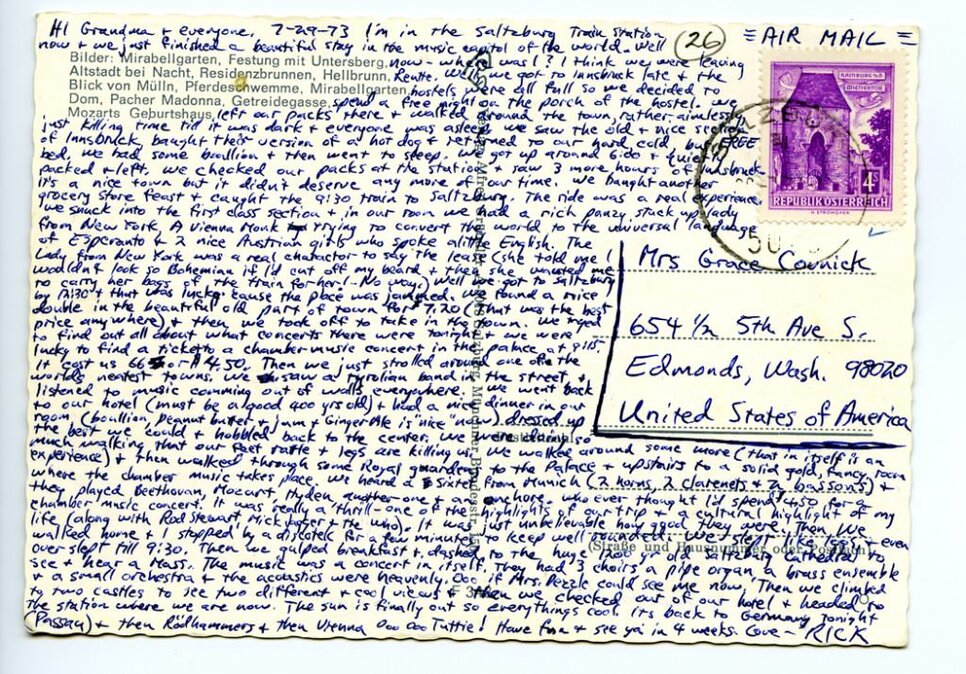 Hi Grandma + everyone, 7-29-73 I'm in the Saltzburg Train Station
now + we just finished a beautiful stay in the music capitol of the world. Well
Bilder: Mirabellgarten, Festung mit Untersberg, now - where was I? I think we were leaving
Altstadt bei Nacht, Residenzbrunnen, Hellbrunn, Reutte. Well we got to Innsbruck late + the
Blick von Mülln, Pferdeschwemme, Mirabellgarten, hostels were all full so we decided to
Dom, Pacher Madonna, Getreidegasse, spend a free night on the porch of the hostel. We
Mozarts Geburtshaus, left our packs there + walked around the town, rather aimlessly
just killing time till it was dark + everyone was asleep. we saw the old + nice section
of Innsbruck, baught their version of a hot dog + returned to our hard cold but FREE
bed, we had some boullion + then went to sleep. We got up around 6:00 + quietly
packed + left. we checked our packs at the station + saw 3 more hours of Innsbruck
it's a nice town but it didn't deserve any more of our time. We baught another
grocery store feast + caught the 9:30 train to Saltzburg. The ride was a real experience.
We snuck into the first class section + in our room we had a rich panzy stuck up lady
from New York, A Vienna Monk trying to convert the world to the universal language
of Esperanto + 2 nice Austrian girls who spoke a little English. The
lady from New York was a real charactor to say the least (she told me I
wouldn't look so Bohemian if I'd cut off my beard + then she wanted me
to carry her bags of the train for her! No way.) Well we got to Saltzburg
by 12:30 + that was lucky cause the place was jammed. We found a nice
double in the beautiful old part of town for 7.20 (that was the best
price anywhere) + then we took off to take in the town. We tryed
to find out all about what concerts there were tonight + we were
lucky to find a ticket to a chamber music concert in the palace at 8:15.
It cost us 66 S or A $4.50. Then we just strolled around one of the
worlds neatest towns. We saw a Tyrolian band in the street +
listened to music comming out of walls everywhere. We went back
to our hotel (must be a good 400 yrs old) + had a nice dinner in our
room (boullion, peanut butter + jam + Ginger Ale is nice now) dressed up
the best we could + hobbled back to the center. We were doing so
much walking that our feet + legs are killing us. We walked around some more (that in itself is an
experience) + then walked through some Royal guarders to the Palace + upstairs to a solid gold, fancy room
where the chamber music takes place. We heard a sixtet from Munich (2 horns, 2 clarenets + 2 bassons) +
they played Beethovan, Mozart, Hyden, another one + an anchore. who ever thought I'd spend 4.50 for a
chamber music concert. It was really a thrill - one of the highlights of our trip + a cultural highlight of my
life (along with Rod Stewart, Mick Jager + the Who). It was just unbelievable how good they were. Then we
walked home + I stopped by a discotek for a few minutes to keep well rounded. We slept like logs + even
over slept till 9:30. Then we gulped breakfast + dashed to the huge 1200 yr old Saltzburg Cathedral to
see + hear a Mass. The music was a concert in itself. They had 3 choirs a pipe organ, a brass ensemble
+ a small orchestra + the acoustics were heavenly. Ooo if Mrs. Pezzle could see me now. Then we climbed
to two castles to see two different + cool views + then we checked out of our hotel + headed to
the station where we are now. The sun is finally out so everythings cool. its back to Germany tonight
(Passau) + then Rödhammers + then Vienna Ooo Ooo Tuttie! Have fun + see ya' in 4 weeks. Love - RICK
(26)
= AIR MAIL =
HAINBURG N.Ö.
WIENERTOR
4 S
REPUBLIK ÖSTERREICH
Mrs Grace Covnick
654 1/2 5th Ave S.
Edmonds, Wash. 98020
United States of America
(Straße und Hausnummer oder Postfach)